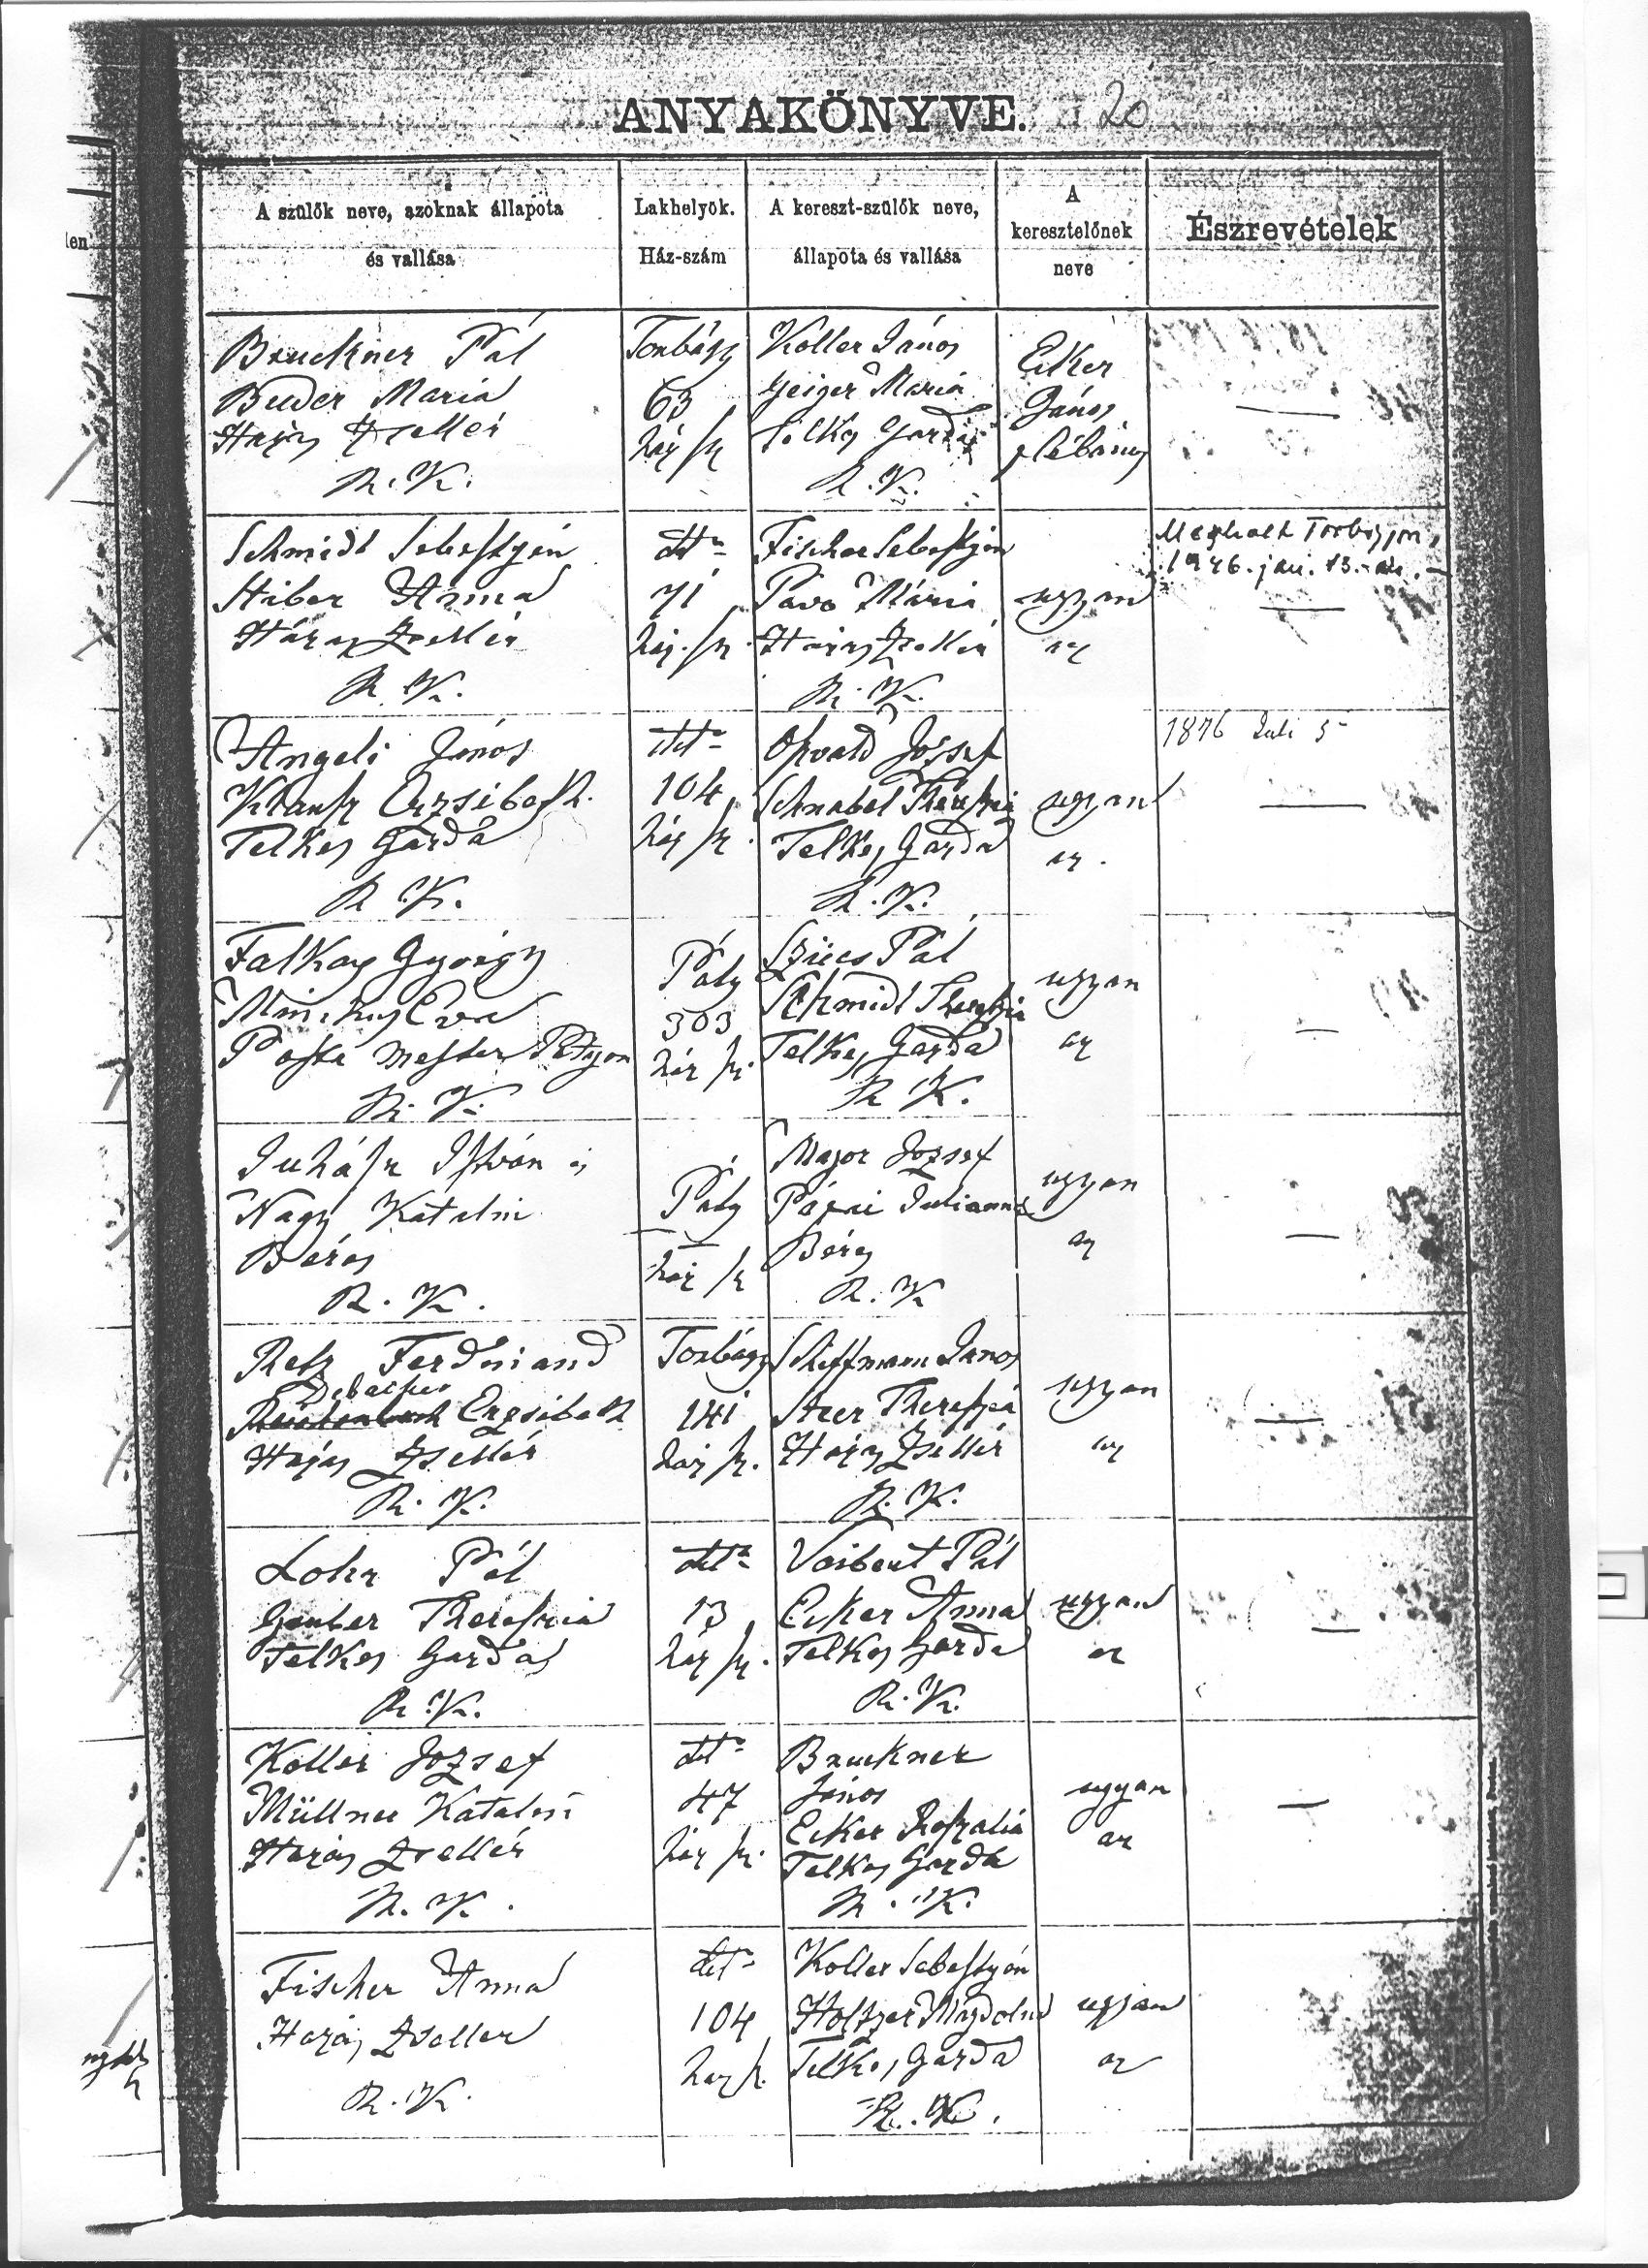 ANYAKÖNYVE. 20
A szülők neve, azoknak állapota
és vallása
Lakhelyök.
Ház-szám
A kereszt-szülők neve,
állapota és vallása
A
keresztelőnek
neve
Észrevételek
Bruckner Pál
Buder Maria
Hazas Zsellér
R. K.
Torbágy
63
ház sz
Koller János
Geiger Maria
Telkes Gazda
R. K.
Ecker
János
plébános
Schmidt Sebestyén
Stiber Anna
Házas Zsellér
R. K.
dtt
71
ház. sz.
Fischer Sebestyén
Pavo Mária
Hazas Zsellér
R. K.
ugyan
az
Meghalt Torbágyon,
1946. jan. 13.-án.
Angeli János
Krausz Erzsibeth.
Telkes Gazda
R. K.
dtt
104
ház sz.
Osvald József
Schnabel Theresia
Telkes Gazda
R. K.
ugyan
az.
1876 Juli 5
Falkay György
Eva
Posta mester Pátyon
R. K.
Páty
303
ház sz.
Szücs Pál
Schmidt Theresia
Telkes Gazda
R. K.
ugyan
az
Juhász István és
Nagy Katalin
Béres
R. K.
Páty
ház sz
Major Jozsef
Pázsi Julianna
Béres
R. K
ugyan
az
Ferdinand
Erzsibeth
Házas Zsellér
R. K.
Torbágy
141
ház sz.
Schiffmann Janos
Theresia
Hazas Zsellér
R. K.
ugyan
az
Lohr Pál
Gruber Theresia
Telkes Gazda
R. K.
dtt
13
ház sz.
Voibert Pál
Ecker Anna
Telkes Gazda
R. K.
ugyan
az
Koller Jozsef
Müllner Katalin
Hazas Zsellér
R. K.
dtt
47
ház sz.
Bruckner
János
Ecker Roszalia
Telkes Gazda
R. K.
ugyan
az
Fischer Anna
Hazas Zseller
R. K.
dtt
104
haz sz.
Koller Sebestyén
Holtzer Magdolna
Telkes Gazda
R. K.
ugyan
az